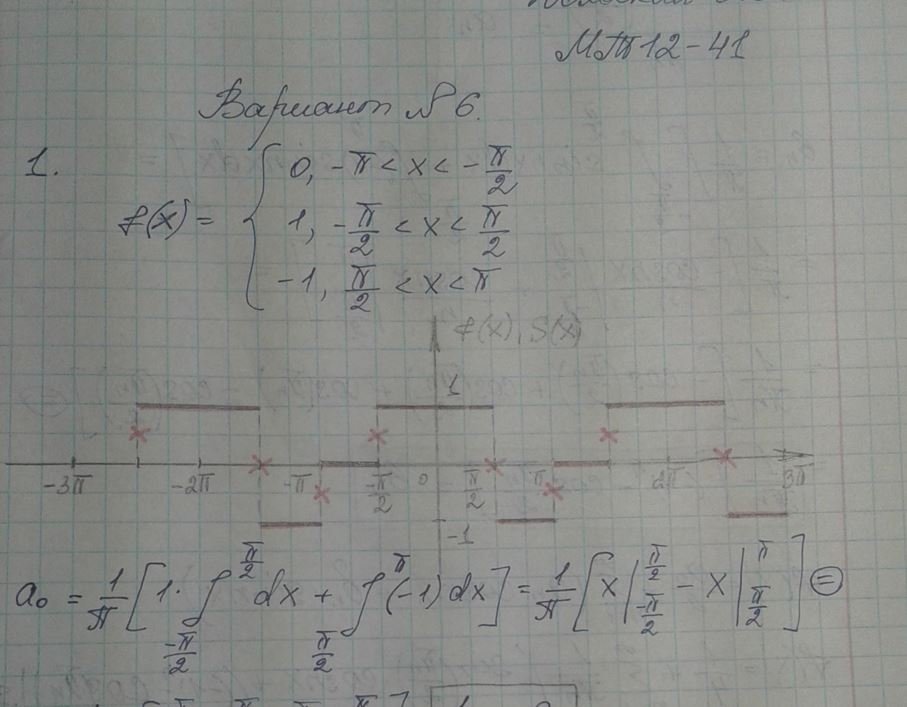 МТП12-41
Вариант № 6.
1.
f(x) = { 0, -π < x < -π/2
1, -π/2 < x < π/2
-1, π/2 < x < π
f(x), S(x)
1
-3π -2π -π -π/2 0 π/2 π 2π 3π
-1
a₀ = 1/π [ 1· ∫_{-π/2}^{π/2} dx + ∫_{π/2}^{π} (-1) dx ] = 1/π [ x |_{-π/2}^{π/2} - x |_{π/2}^{π} ] =